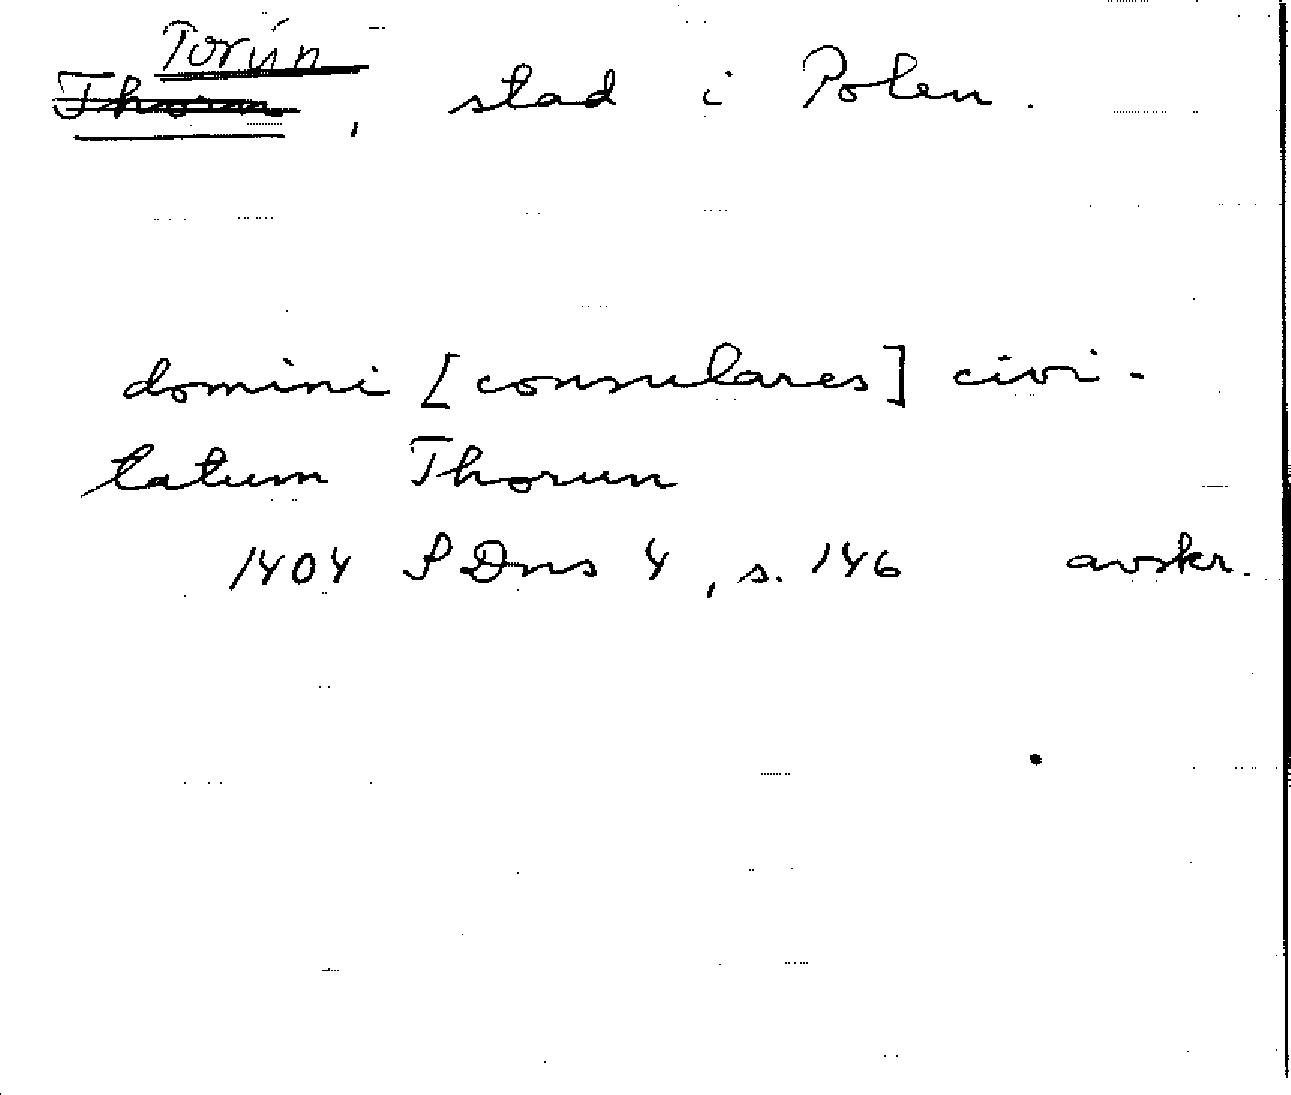 Torún
Thorn, stad i Polen.
domini [consulares] civi-
tatum Thorun
1404 SDns 4, s. 146 avskr.